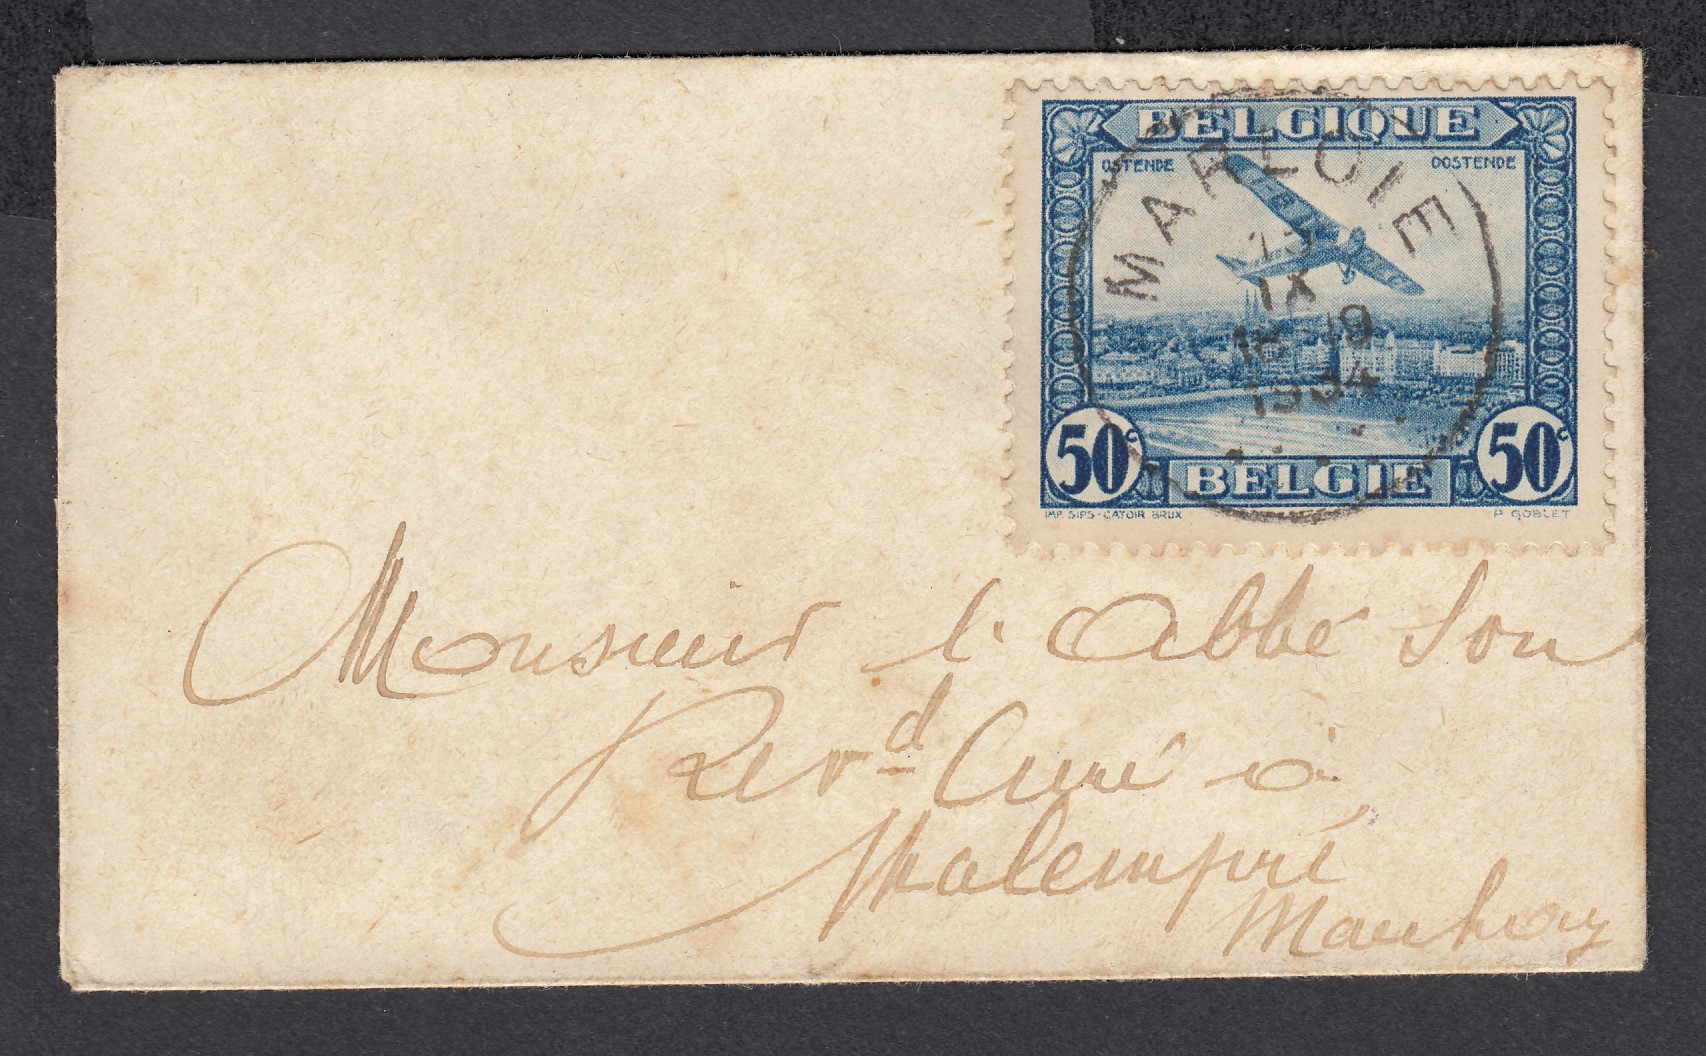 BELGIQUE
OSTENDE OOSTENDE
MARLOIE
IX
18-19
1934
50c 50c
BELGIE
IMP. SIPS-CATOIR BRUX P. GOBLET
Monsieur l'Abbé Son
Rev.d Curé à
Malempré
Manhay